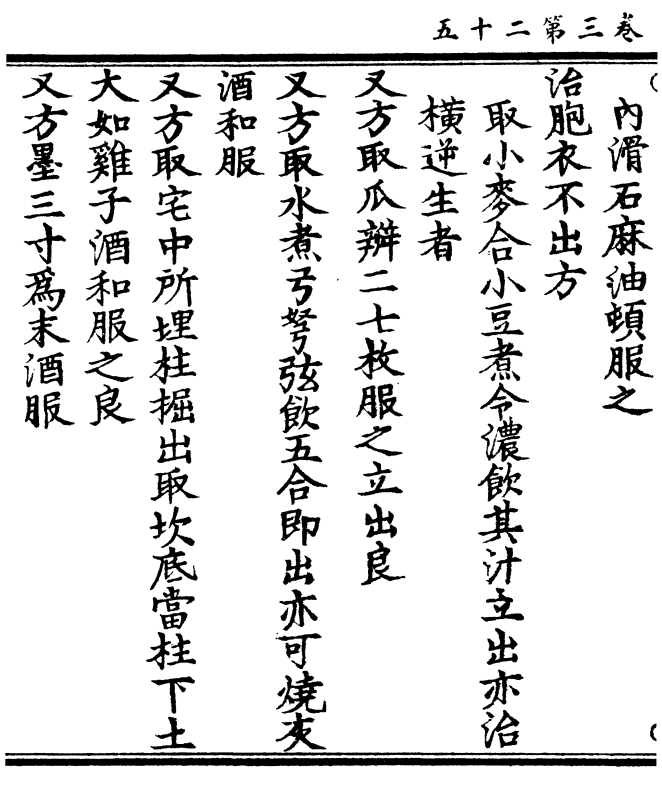 卷三第二十五
內滑石麻油頓服之
治胞衣不出方
取小麥合小豆煮令濃飲其汁立出亦治
橫逆生者
又方取瓜瓣二七枚服之立出良
又方取水煮弓弩弦飲五合即出亦可燒灰
酒和服
又方取宅中所埋柱掘出取坎底當柱下土
大如雞子酒和服之良
又方墨三寸爲末酒服